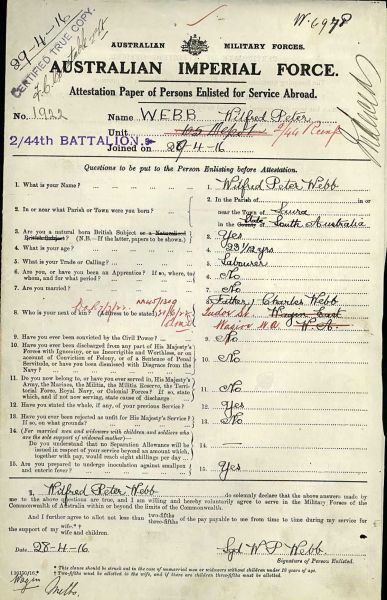 W. 6978
29-4-16
CERTIFIED TRUE COPY.
AUSTRALIAN MILITARY FORCES.
AUSTRALIAN IMPERIAL FORCE.
Attestation Paper of Persons Enlisted for Service Abroad.
No. 1922
Name WEBB Wilfred Peter
Unit
2/44th BATTALION.
Joined on 29-4-16
Questions to be put to the Person Enlisting before Attestation.
1. What is your Name? 1. Wilfred Peter Webb
2. In or near what Parish or Town were you born? 2. In the Parish of in or
near the Town of Laura
in the County of State South Australia
3. Are you a natural born British Subject or a Naturalized
British Subject? (N.B.—If the latter, papers to be shown.) 3. Yes
4. What is your age? 4. 23 1/12 yrs
5. What is your Trade or Calling? 5. Labourer
6. Are you, or have you been an Apprentice? If so, where, to
whom, and for what period? 6. No
7. Are you married? 7. No
8. Who is your next of kin? (Address to be stated) 8. Father, Charles Webb
Tudor St. Wagin East
Wagin W.A. W.A.
9. Have you ever been convicted by the Civil Power? 9. No
10. Have you ever been discharged from any part of His Majesty's
Forces with Ignominy, or as Incorrigible and Worthless, or on
account of Conviction of Felony, or of a Sentence of Penal
Servitude, or have you been dismissed with Disgrace from the
Navy? 10. No
11. Do you now belong to, or have you ever served in, His Majesty's
Army, the Marines, the Militia, the Militia Reserve, the Territorial
Force, Royal Navy, or Colonial Forces? If so, state
which, and if not now serving, state cause of discharge 11. No
12. Have you stated the whole, if any, of your previous Service? 12. Yes
13. Have you ever been rejected as unfit for His Majesty's Service?
If so, on what grounds? 13. No
14. (For married men and widowers with children and soldiers who
are the sole support of widowed mother)—
Do you understand that no Separation Allowance will be
issued in respect of your service beyond an amount which,
together with pay, would reach eight shillings per day 14. —
15. Are you prepared to undergo inoculation against smallpox and
enteric fever? 15. Yes
I, Wilfred Peter Webb do solemnly declare that the above answers made by
me to the above questions are true, and I am willing and hereby voluntarily agree to serve in the Military Forces of the
Commonwealth of Australia within or beyond the limits of the Commonwealth.
And I further agree to allot not less than two-fifths three-fifths of the pay payable to me from time to time during my service for
the support of my wife.* † wife and children.
Date 28-4-16 Sgd W. P. Webb.
Signature of Person Enlisted.
* This clause should be struck out in the case of unmarried men or widowers without children under 18 years of age.
† Two-fifths must be allotted to the wife, and if there are children three-fifths must be allotted.
Wagin